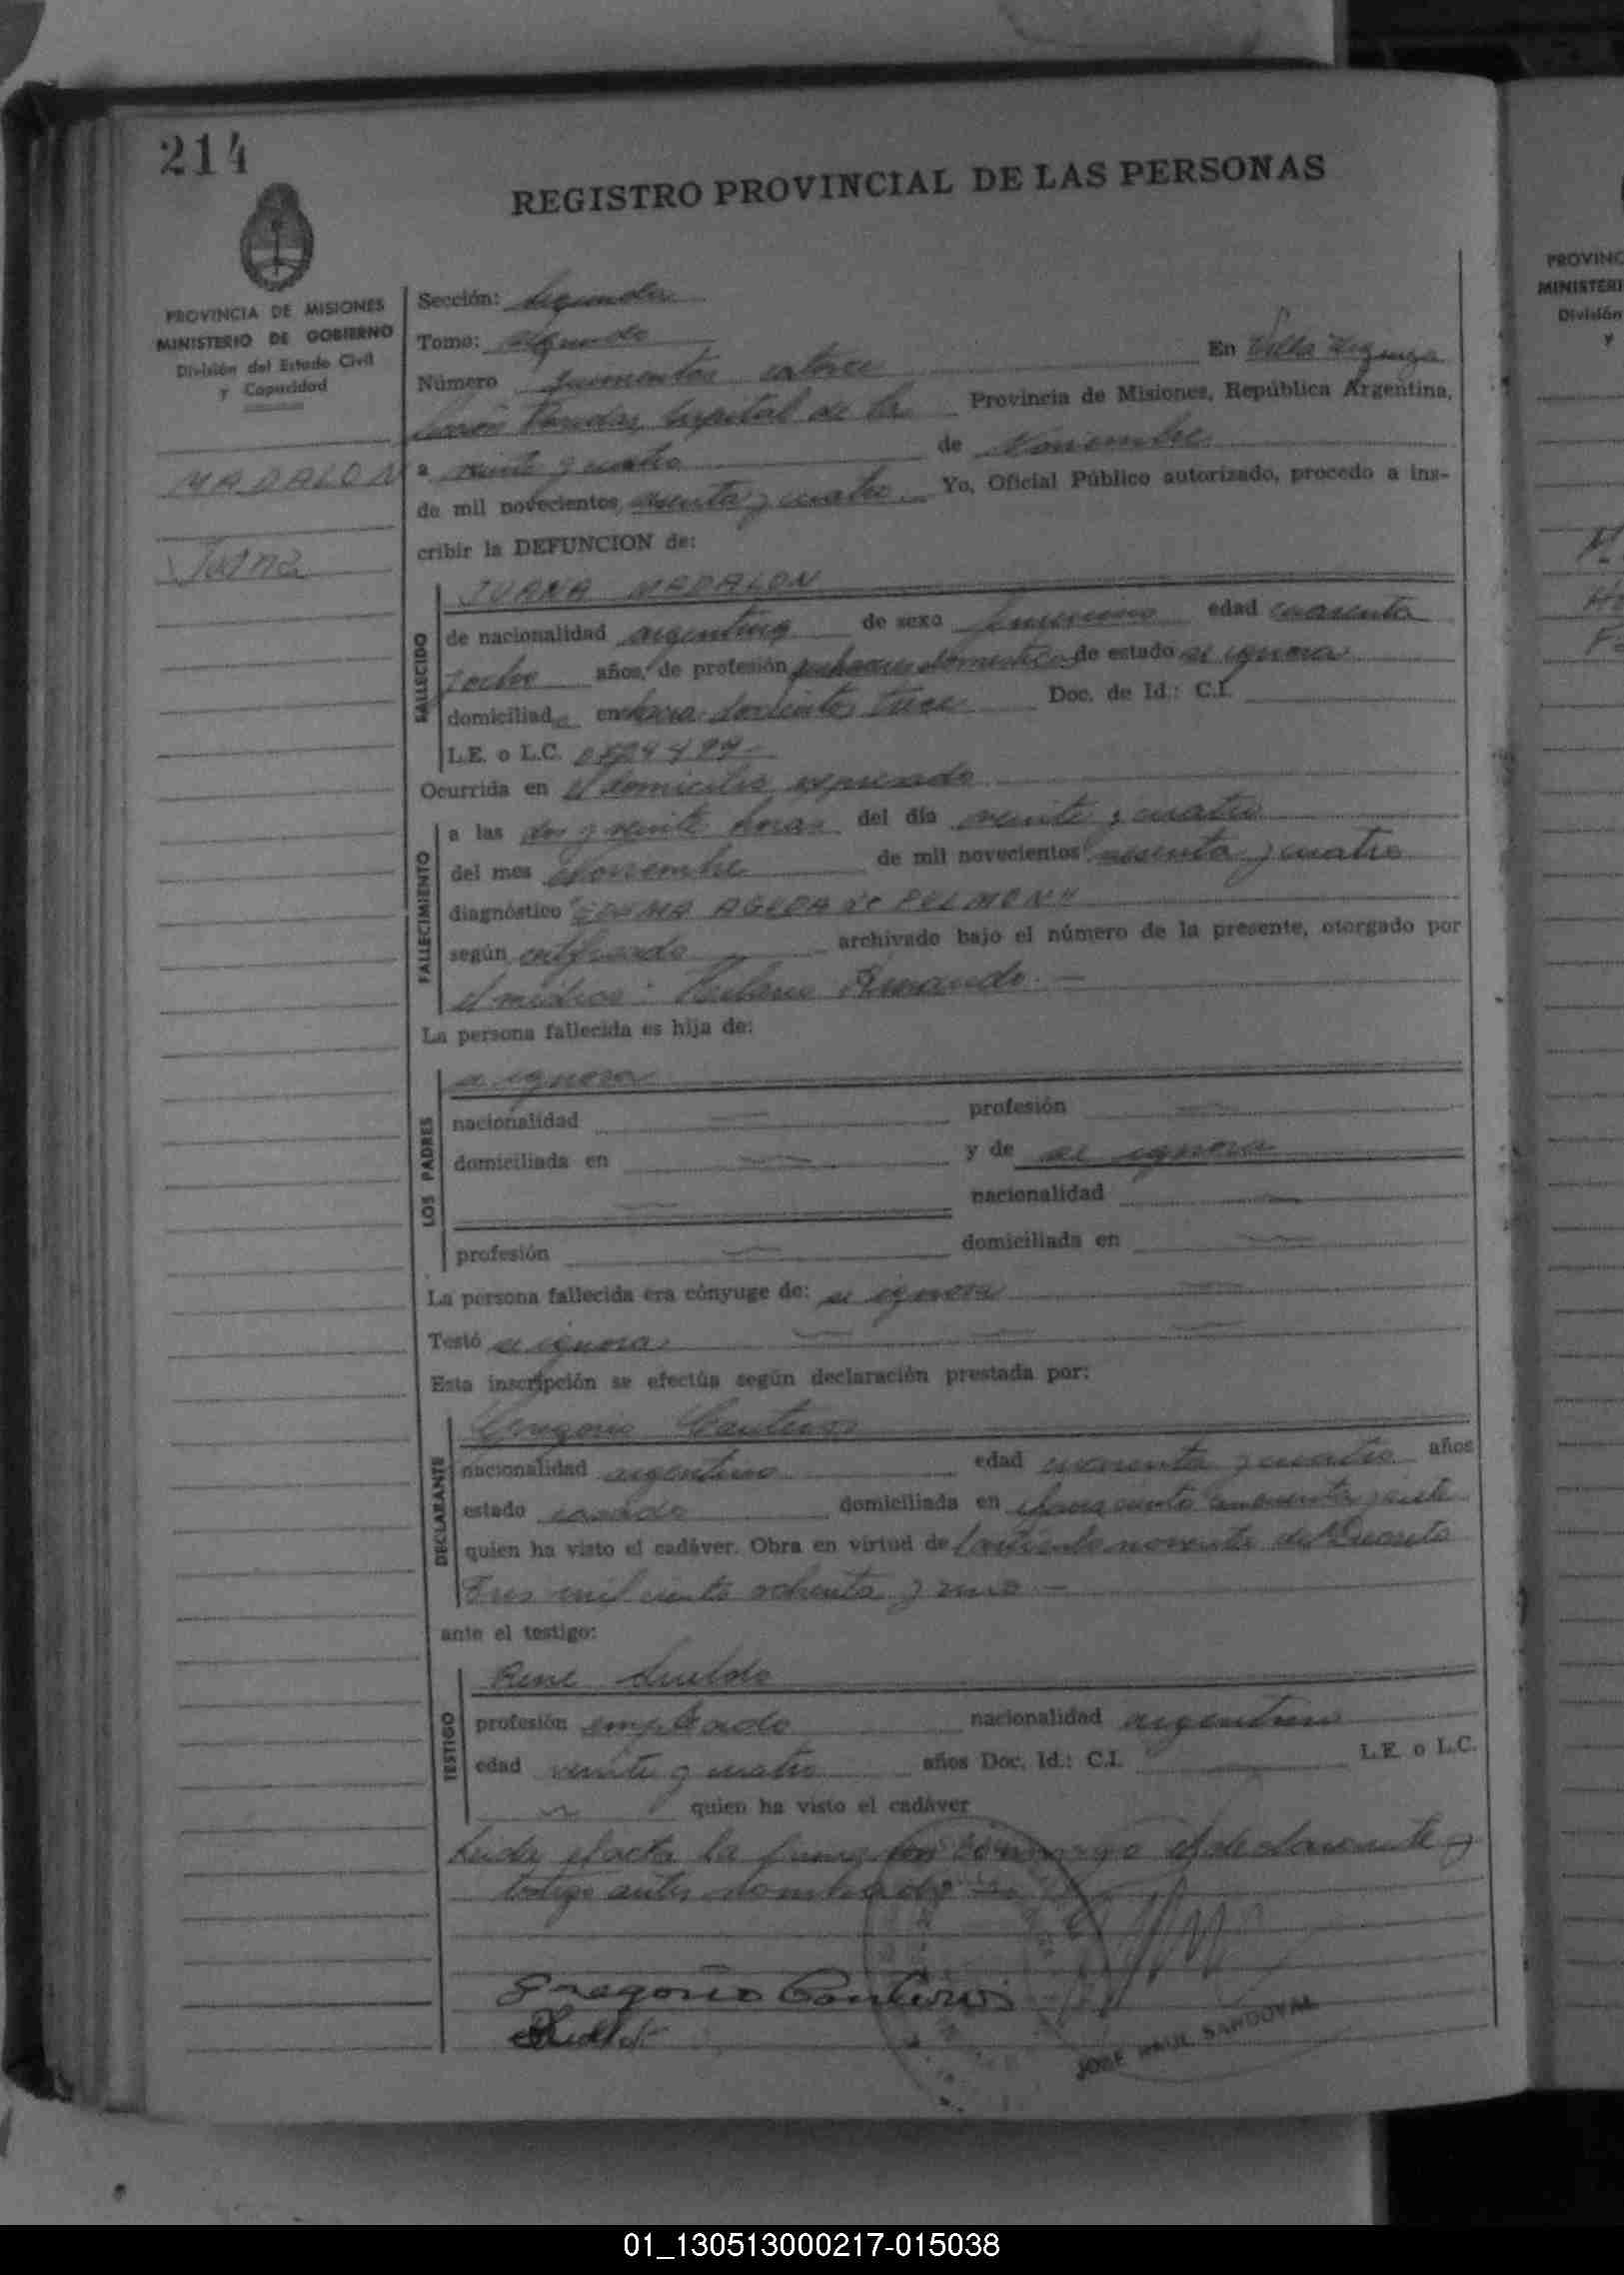 214
REGISTRO PROVINCIAL DE LAS PERSONAS
PROVINCIA DE MISIONES
MINISTERIO DE GOBIERNO
División del Estado Civil
y Capacidad
MADALON
Juana
Sección: Segunda
Tomo: Segundo
Número catorce En Villa
Capital de la Provincia de Misiones, República Argentina,
a veinte y cuatro de Noviembre
de mil novecientos sesenta y cuatro Yo, Oficial Público autorizado, procedo a ins-
cribir la DEFUNCION de:
FALLECIDO
JUANA MADALON
de nacionalidad argentina de sexo femenino edad cuarenta
y ocho años, de profesión quehaceres domesticos de estado se ignora
domiciliada en chacra doscientos trece Doc. de Id.: C.I.
L.E. o L.C.
Ocurrida en el domicilio expresado
FALLECIMIENTO
a las dos y veinte horas del día veinte y cuatro
del mes Noviembre de mil novecientos sesenta y cuatro
diagnóstico "EDEMA AGUDA de PULMON"
según certificado archivado bajo el número de la presente, otorgado por
el médico: Armando
La persona fallecida es hija de:
LOS PADRES
se ignora
nacionalidad — profesión —
domiciliada en — y de se ignora
— nacionalidad —
profesión — domiciliada en —
La persona fallecida era cónyuge de: se ignora —
Testó se ignora — — —
Esta inscripción se efectúa según declaración prestada por:
DECLARANTE
Gregorio Conteros
nacionalidad argentino edad cuarenta y cuatro años
estado casado domiciliada en chacra ciento cincuenta y siete
quien ha visto el cadáver. Obra en virtud de Art. ciento noventa del Decreto
Tres mil ciento ochenta y uno —
ante el testigo:
TESTIGO
Rene
profesión empleado nacionalidad argentino
edad veinte y cuatro años Doc. Id.: C.I. — L.E. o L.C.
— quien ha visto el cadáver
Leida el acta la firma con conmigo el declarante y
testigo antes nombrado
Gregorio Conteros
JOSE RAUL SANDOVAL
PROVINC
MINISTERI
División
y
01_130513000217-015038